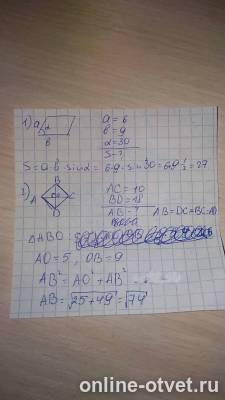 1) a α b
a = 6
b = 9
α = 30
S - ?
S = a · b · sin α = 6 · 9 · sin 30 = 6 · 9 · 1/2 = 27
2) A B C D
AC = 10
BD = 18
AB - ? AB = DC = BC = AD
ΔABO :
AO = 5 , OB = 9
AB² = AO² + AB²
AB = √25+49 = √74
online-otvet.ru